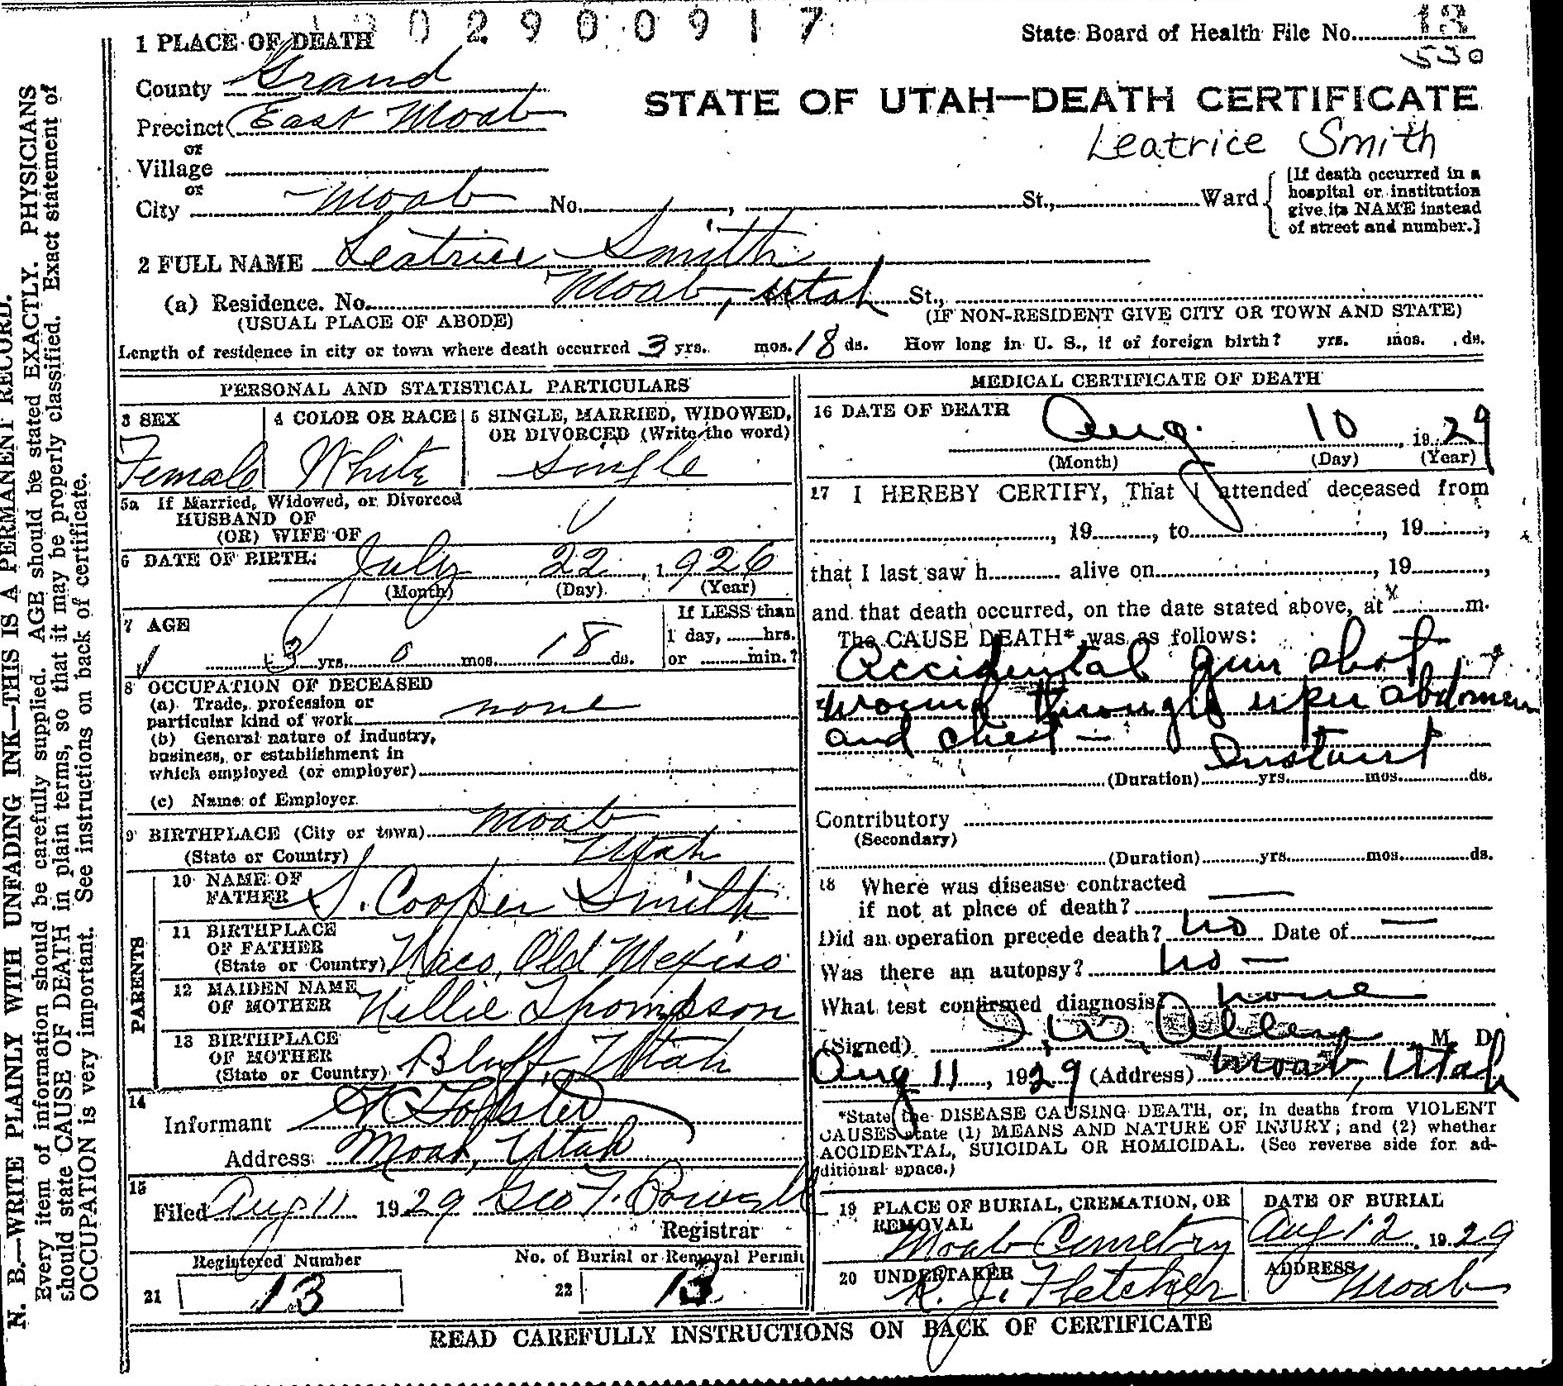 1 PLACE OF DEATH 302900917
State Board of Health File No. 13
530
County Grand
STATE OF UTAH—DEATH CERTIFICATE
Precinct East Moab
Leatrice Smith
or
Village
or
City Moab No. , St., Ward
[If death occurred in a
hospital or institution
give its NAME instead
of street and number.]
2 FULL NAME Leatrice Smith
(a) Residence. No. Moab, Utah St.,
(USUAL PLACE OF ABODE) (IF NON-RESIDENT GIVE CITY OR TOWN AND STATE)
Length of residence in city or town where death occurred 3 yrs. mos. 18 ds. How long in U. S., if of foreign birth? yrs. mos. ds.
PERSONAL AND STATISTICAL PARTICULARS
3 SEX
Female
4 COLOR OR RACE
White
5 SINGLE, MARRIED, WIDOWED,
OR DIVORCED (Write the word)
Single
5a If Married, Widowed, or Divorced
HUSBAND OF
(OR) WIFE OF
6 DATE OF BIRTH: July 22, 1926
(Month) (Day) (Year)
7 AGE
3 yrs. 0 mos. 18 ds.
If LESS than
1 day, hrs.
or min.?
8 OCCUPATION OF DECEASED
(a) Trade, profession or
particular kind of work none
(b) General nature of industry,
business, or establishment in
which employed (or employer)
(c) Name of Employer
9 BIRTHPLACE (City or town) Moab
(State or Country) Utah
PARENTS
10 NAME OF
FATHER S. Cooper Smith
11 BIRTHPLACE
OF FATHER
(State or Country) Waco, Old Mexico
12 MAIDEN NAME
OF MOTHER Nellie Thompson
13 BIRTHPLACE
OF MOTHER
(State or Country) Bluff, Utah
14
Informant
Address Moab, Utah
15
Filed Aug 11 1929 Geo F. Powell
Registrar
Registered Number
21 13
No. of Burial or Removal Permit
22 13
MEDICAL CERTIFICATE OF DEATH
16 DATE OF DEATH Aug. 10, 1929
(Month) (Day) (Year)
17 I HEREBY CERTIFY, That I attended deceased from
, 19 , to , 19 ,
that I last saw h alive on , 19 ,
and that death occurred, on the date stated above, at m.
The CAUSE DEATH* was as follows:
Accidental gun shot
wound through uper abdomen
and chest —
Instant
(Duration) yrs. mos. ds.
Contributory
(Secondary)
(Duration) yrs. mos. ds.
18 Where was disease contracted
if not at place of death? —
Did an operation precede death? no Date of —
Was there an autopsy? no —
What test confirmed diagnosis? none
(Signed) I. W. Allen M. D.
Aug 11, 1929 (Address) Moab, Utah
*State the DISEASE CAUSING DEATH, or, in deaths from VIOLENT
CAUSES state (1) MEANS AND NATURE OF INJURY; and (2) whether
ACCIDENTAL, SUICIDAL OR HOMICIDAL. (See reverse side for ad-
ditional space.)
19 PLACE OF BURIAL, CREMATION, OR
REMOVAL
Moab Cemetry
DATE OF BURIAL
Aug 12, 1929
20 UNDERTAKER
R. J. Fletcher
ADDRESS
Moab
READ CAREFULLY INSTRUCTIONS ON BACK OF CERTIFICATE
N. B.—WRITE PLAINLY WITH UNFADING INK—THIS IS A PERMANENT RECORD.
Every item of information should be carefully supplied. AGE should be stated EXACTLY. PHYSICIANS
should state CAUSE OF DEATH in plain terms, so that it may be properly classified. Exact statement of
OCCUPATION is very important. See instructions on back of certificate.